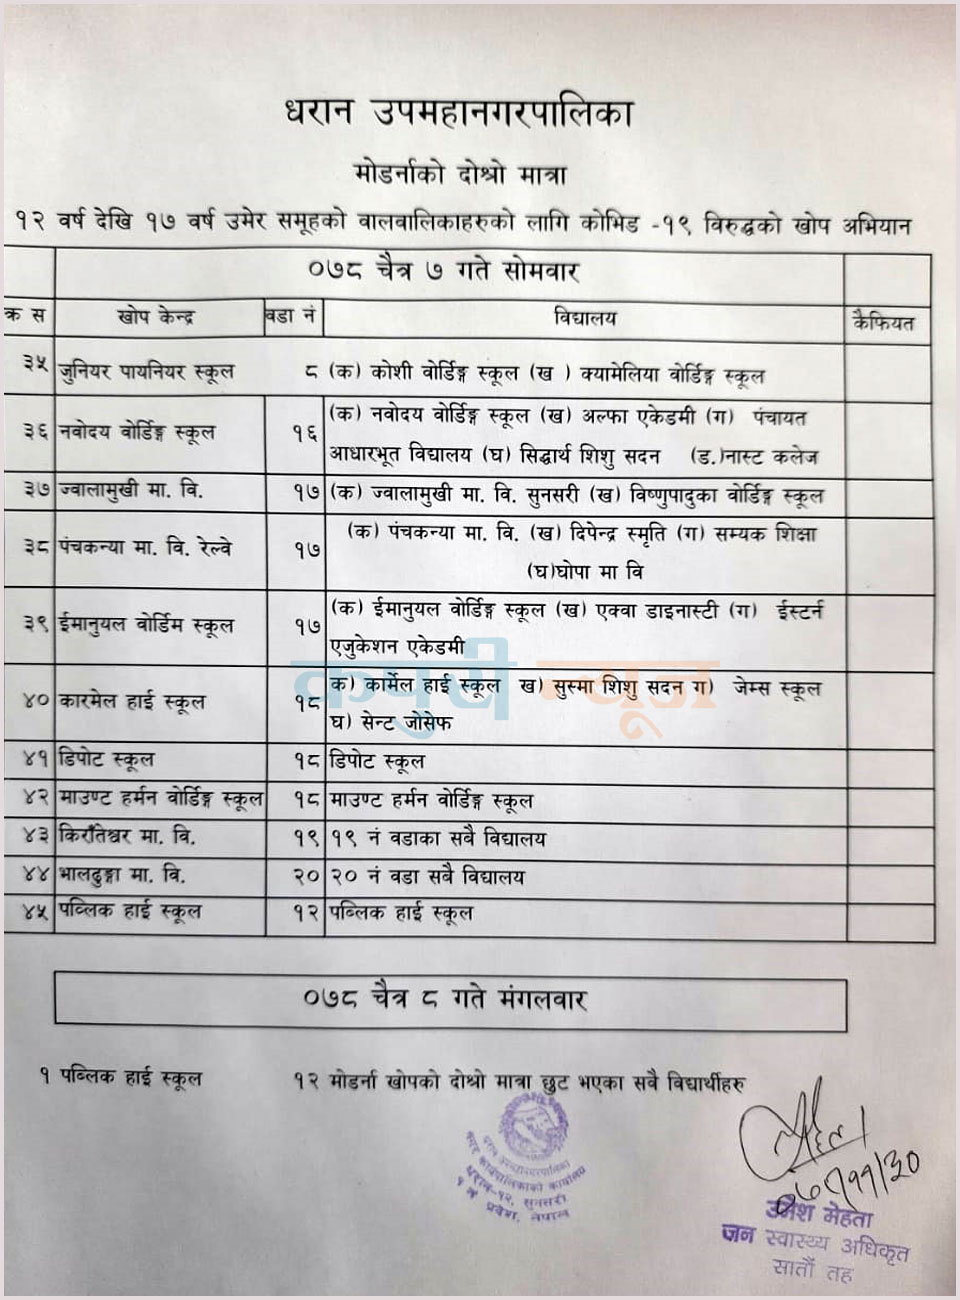 धरान उपमहानगरपालिका
मोडर्नाको दोश्रो मात्रा
१२ वर्ष देखि १७ वर्ष उमेर समूहको वालवालिकाहरुको लागि कोभिड -१९ विरुद्धको खोप अभियान
०७८ चैत्र ७ गते सोमवार
क्र स खोप केन्द्र वडा नं विद्यालय कैफियत
३५ जुनियर पायनियर स्कूल ८ (क) कोशी वोर्डिङ्ग स्कूल (ख ) क्यामेलिया वोर्डिङ्ग स्कूल
३६ नवोदय वोर्डिङ्ग स्कूल १६ (क) नवोदय वोर्डिङ्ग स्कूल (ख) अल्फा एकेडमी (ग) पंचायत
आधारभूत विद्यालय (घ) सिद्धार्थ शिशु सदन (ड.)नास्ट कलेज
३७ ज्वालामुखी मा. वि. १७ (क) ज्वालामुखी मा. वि. सुनसरी (ख) विष्णुपादुका वोर्डिङ्ग स्कूल
३८ पंचकन्या मा. वि. रेल्वे १७ (क) पंचकन्या मा. वि. (ख) दिपेन्द्र स्मृति (ग) सम्यक शिक्षा
(घ)घोपा मा वि
३९ ईमानुयल वोर्डिम स्कूल १७ (क) ईमानुयल वोर्डिङ्ग स्कूल (ख) एक्वा डाइनास्टी (ग) ईस्टर्न
एजुकेशन एकेडमी
कपुरी न्यूज
४० कारमेल हाई स्कूल १८ क) कार्मेल हाई स्कूल ख) सुस्मा शिशु सदन ग) जेम्स स्कूल
घ) सेन्ट जोसेफ
४१ डिपोट स्कूल १८ डिपोट स्कूल
४२ माउण्ट हर्मन वोर्डिङ्ग स्कूल १८ माउण्ट हर्मन वोर्डिङ्ग स्कूल
४३ किराँतेश्वर मा. वि. १९ १९ नं वडाका सवै विद्यालय
४४ भालढुङ्गा मा. वि. २० २० नं वडा सवै विद्यालय
४५ पव्लिक हाई स्कूल १२ पव्लिक हाई स्कूल
०७८ चैत्र ८ गते मंगलवार
१ पव्लिक हाई स्कूल १२ मोडर्ना खोपको दोश्रो मात्रा छुट भएका सवै विद्यार्थीहरु
धरान उपमहानगरपालिका
नगर कार्यपालिकाको कार्यालय
धरान-१२, सुनसरी
१ नं प्रदेश, नेपाल
०७८/११/३०
उमेश मेहता
जन स्वास्थ्य अधिकृत
सातौं तह